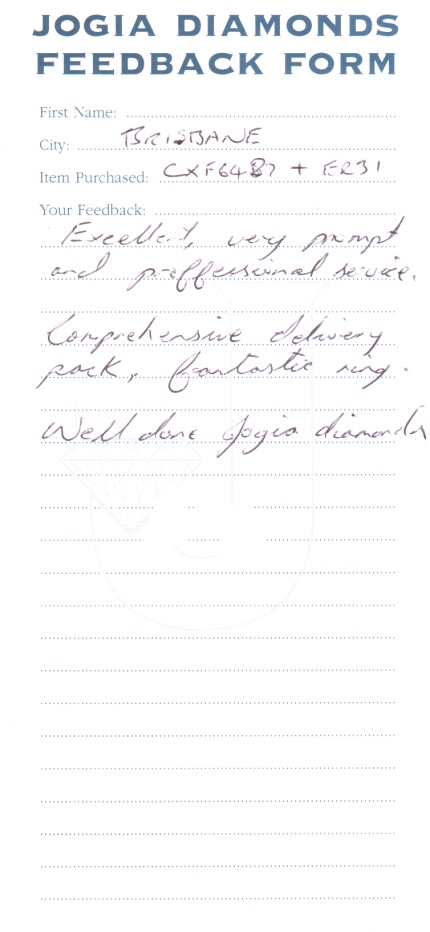 JOGIA DIAMONDS
FEEDBACK FORM
First Name:
City: BRISBANE
Item Purchased: CXF6487 + ER31
Your Feedback:
Excellent, very prompt
and proffessional service.
Comprehensive delivery
pack, fantastic ring.
Well done Jogia diamonds